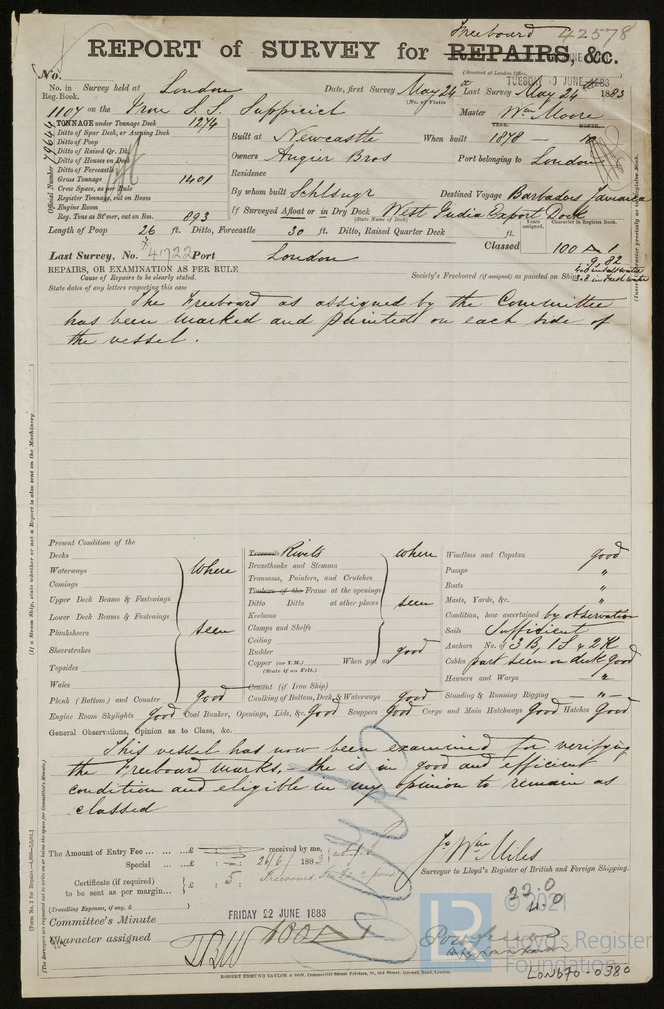 Freeboard 42578
REPORT of SURVEY for REPAIRS, &c.
No.
(Received at London Office,
TUESDAY JUNE 1883
No. in Survey held at London Date, first Survey May 24th Last Survey May 24th 1883
Reg. Book. (No. of Visits
1104 on the Iron S. S. Suppicich Master Wm Moore
TONNAGE under Tonnage Deck 1274
Ditto of Spar Deck, or Awning Deck
Ditto of Poop
Ditto of Raised Qr. Dk.
Ditto of Houses on Deck
Ditto of Forecastle
Gross Tonnage 1401
Crew Space, as per Rule
Register Tonnage, cut on Beam
Engine Room
Reg. Tons as St'mer, cut on Bm. 893
Official Number 79644
YEAR. MONTH.
Built at Newcastle When built 1878 — 10
Owners Angier Bros Port belonging to London
Residence
By whom built Schlsngr Destined Voyage Barbadoes Jamaica
If Surveyed Afloat or in Dry Dock West India Export Dock
(State Name of Dock)
Years assigned. Character in Register Book.
Length of Poop 26 ft. Ditto, Forecastle 30 ft. Ditto, Raised Quarter Deck ft.
Classed 100 A 1
9, 82
Last Survey, No. 41722 Port London
REPAIRS, OR EXAMINATION AS PER RULE
Cause of Repairs to be clearly stated.
Society's Freeboard (if assigned) as painted on Ship
State dates of any letters respecting this case
The Freeboard as assigned by the Committee
has been marked and painted on each side of
the vessel.
Present Condition of the
Decks
Waterways
Comings
Upper Deck Beams & Fastenings
Lower Deck Beams & Fastenings
Planksheers
Sheerstrakes
Topsides
Wales
where
seen
Plank (Bottom) and Counter good
Treenails Rivets
Breasthooks and Stemson
Transoms, Pointers, and Crutches
Timbers of the Frame at the openings
Ditto Ditto at other places
Keelsons
Clamps and Shelfs
Ceiling
Rudder
Copper (or Y.M.) When put on
(State if on Felt.)
where
seen
good
Cement (if Iron Ship)
Caulking of Bottom, Deck, & Waterways good
Windlass and Capstan good
Pumps "
Boats "
Masts, Yards, &c. "
Condition, how ascertained by observation
Sails Sufficient
Anchors No. of 3 B, 1 S, & 2 K
Cables part seen on deck good
Hawsers and Warps — " —
Standing & Running Rigging — " —
Engine Room Skylights good Coal Bunker, Openings, Lids, &c. Good Scuppers Good Cargo and Main Hatchways Good Hatches Good
General Observations, Opinion as to Class, &c.
This vessel has now been examined for verifying
the Freeboard marks, — she is in good and efficient
condition and eligible in my opinion to remain as
classed
The Amount of Entry Fee ... £ : : received by me,
Special ... £ : : 26/6/ 1883
Certificate (if required) £ : 5 :
to be sent as per margin...
(Travelling Expenses, if any, £
Jo Wm Miles
Surveyor to Lloyd's Register of British and Foreign Shipping.
Committee's Minute FRIDAY 22 JUNE 1883
Character assigned 100 A 1
ROBERT EDMUND TAYLOR & SON, Commercial Steam Printers, 19, Old Street, Goswell Road, London.
© 2021
LR
Lloyd's Register
Foundation
LON670-0380